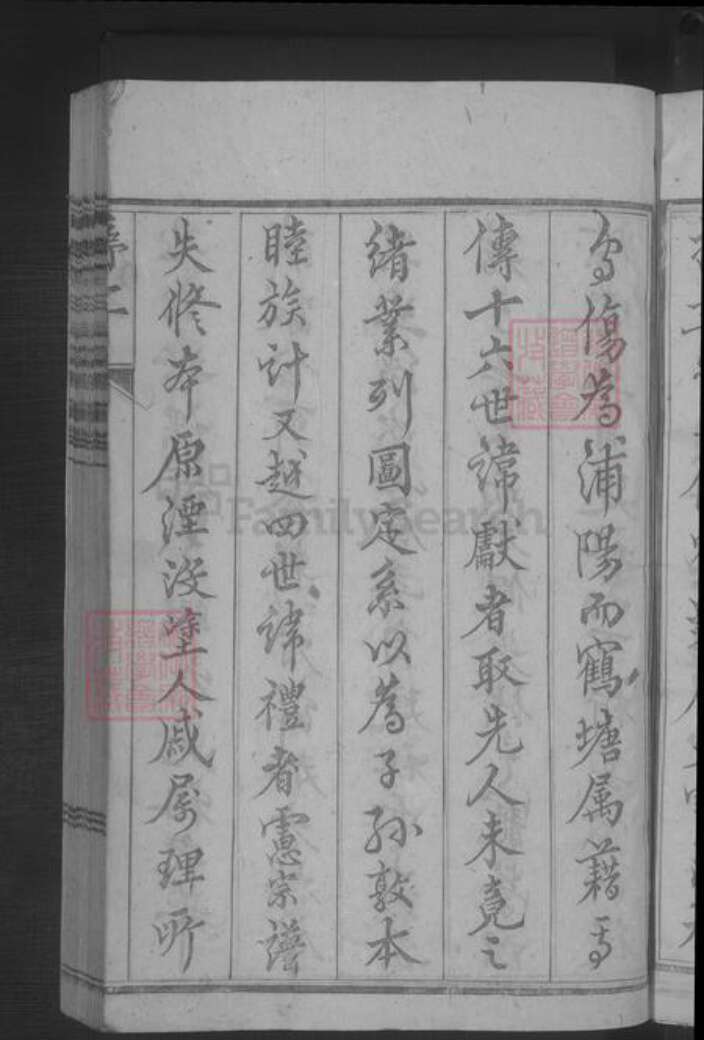 烏傷為浦陽而鶴塘属藉焉
傳十六世諱獻者取先人未竟之
緒業列圖定系以為子孫敦本
睦族計又越四世諱禮者慮宗譜
失修本原湮没塗人戚属理所
序二
FamilySearch